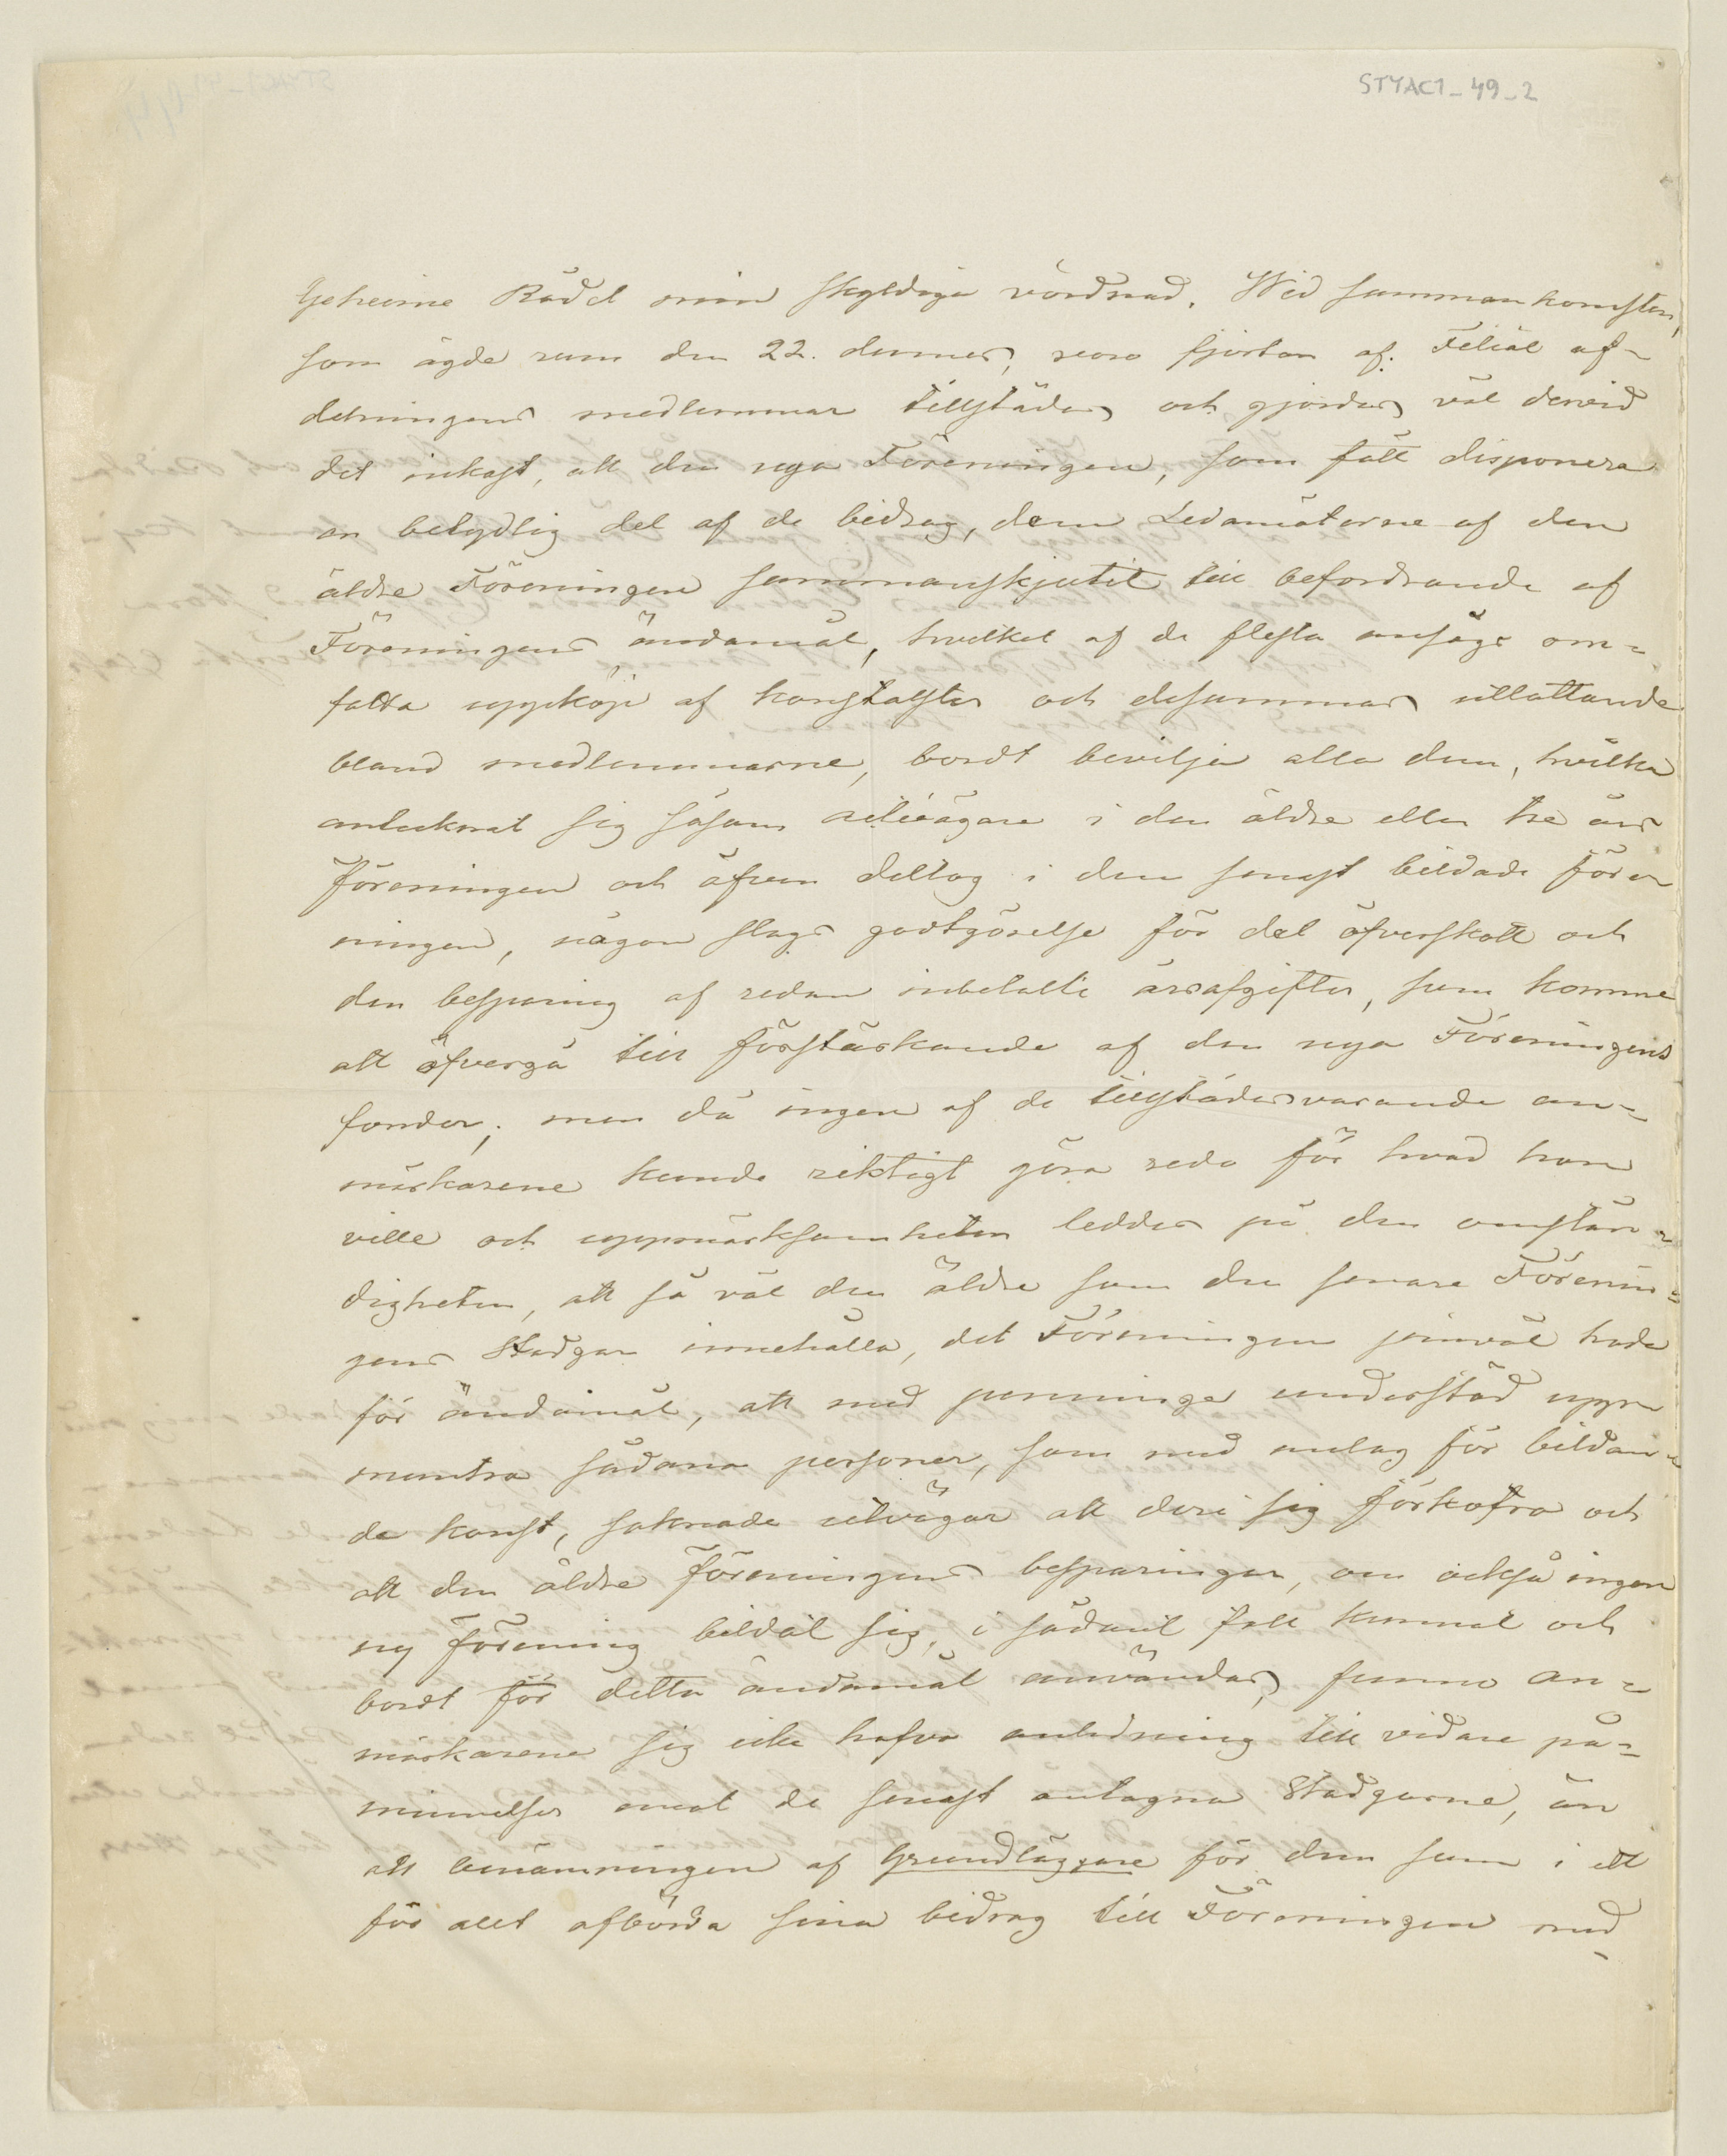 STYAC1_49_2
Geheime Rådet min skyldiga vördnad. Wid sammankomsten,
som ägde rum den 22. dennes, voro fjorton af Filial af-
delningens medlemmar tillstädes och gjordes väl dervid
det inkast, att den nya Föreningen, som fått disponera
en betydlig del af de bidrag, dem Ledamöterne af den
äldre Föreningen sammanskjutit till befordrande af
Föreningens ändamål, hvilket af de flesta ansågs om-
fatta uppköp af konstalster och desammas utlottande
bland medlemmarne, bordt bevilja alla dem, hvilka
antecknat sig såsom actieägare i den äldre eller tre års
föreningen och äfven deltog i den senast bildade före
ningen, någon slags godtgörelse för det öfverskott och
den besparing af redan inbetalte årsafgifter, som komme
att öfvergå till förstärkande af den nya Föreningens
fonder; men då ingen af de tillstädesvarande an-
märkarene kunde riktigt göra reda för hvad han
ville och uppmärksamheten leddes på den omstän-
digheten, att så väl den äldre som den senare Förenin-
gens Stadgar innehålla, det Föreningen jemväl hade
för ändamål, att med penninge understöd upp-
muntra sådana personer, som med anlag för bildan-
de konst, saknade utvägar att deri sig förkofra och
att den äldre föreningens besparingar, om också ingen
ny förening bildat sig, i sådant fall kunnat och
bordt för detta ändamål användas, funno an-
märkarene sig icke hafva anledning till vidare på-
minnelser emot de senast antagna Stadgarne, än
att benämningen af Grundläggare för dem som i ett
för allt afbörda sina bidrag till Föreningen med